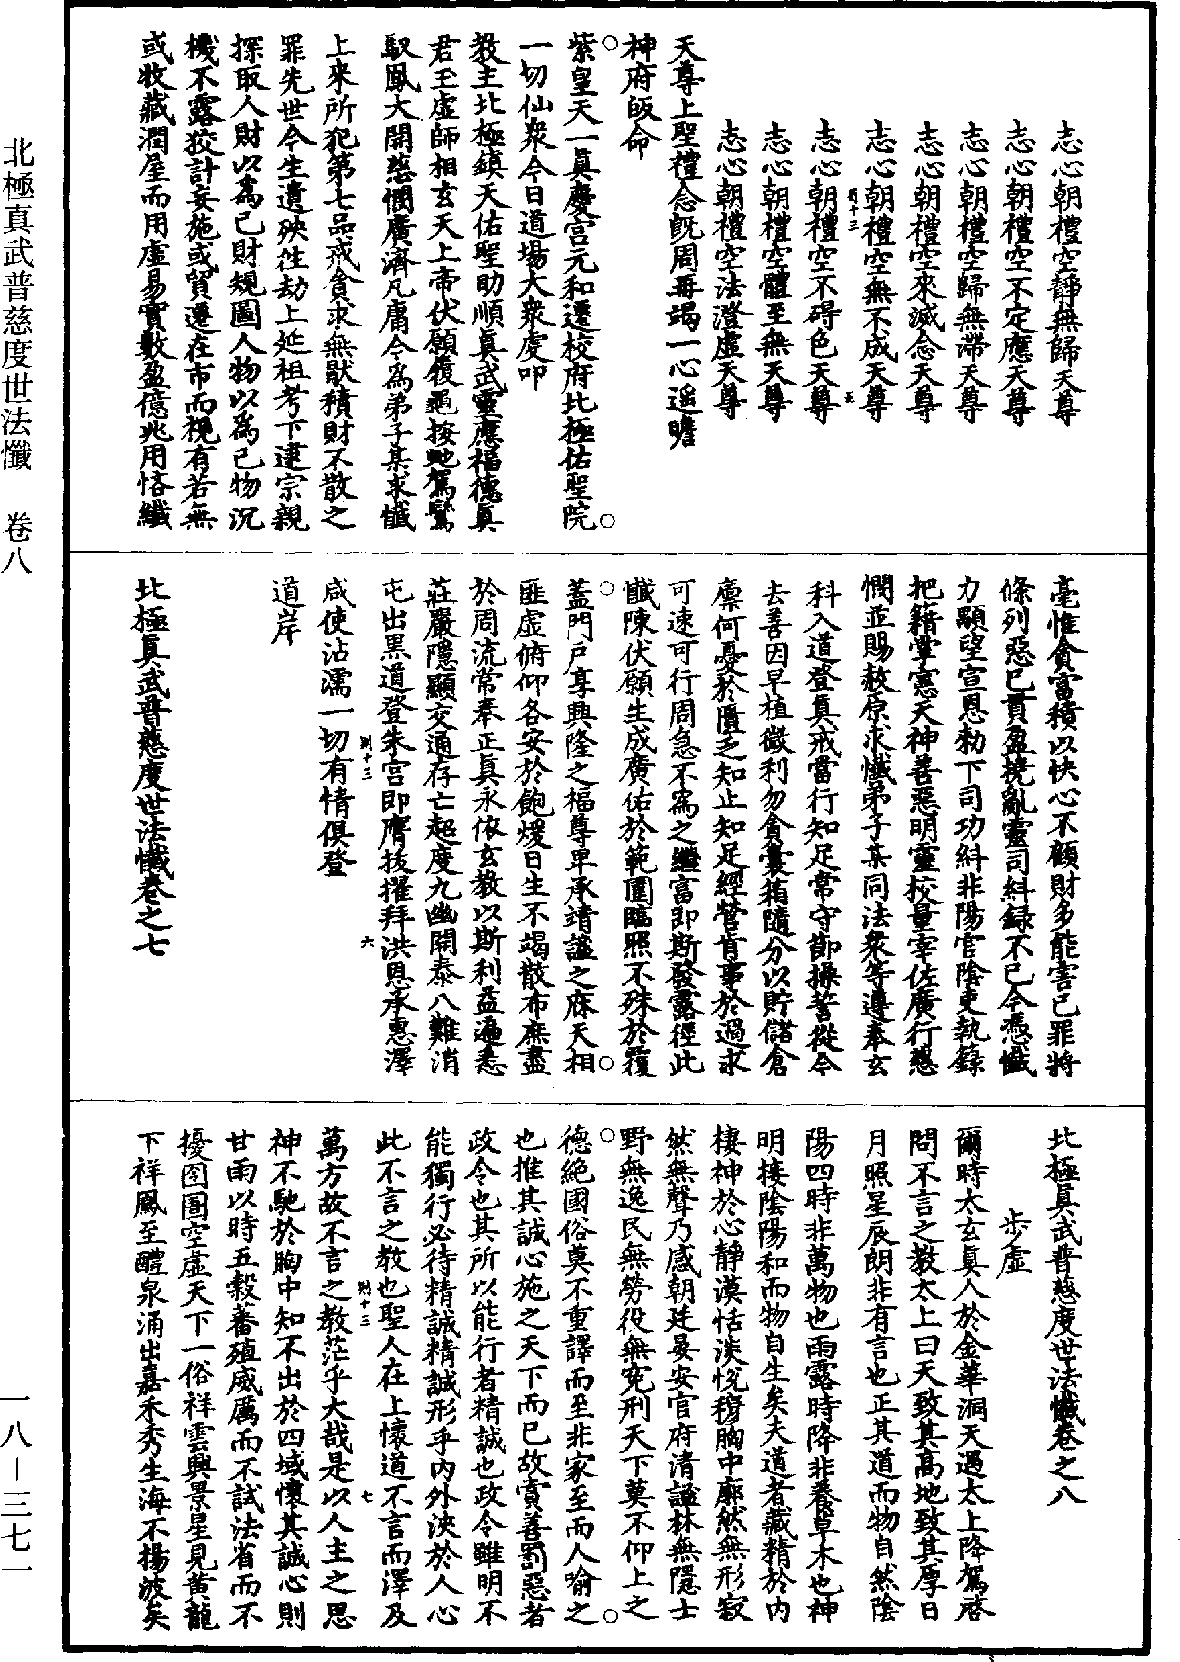 北極真武普慈度世法懺　卷八
一八－三七一
志心朝禮空靜無歸天尊
志心朝禮空不定應天尊
志心朝禮空歸無滯天尊
志心朝禮空來滅念天尊
志心朝禮空無不成天尊
志心朝禮空不碍色天尊
志心朝禮空體至無天尊
志心朝禮空法澄虛天尊
天尊上聖禮念旣周再竭一心遥瞻
神府皈命
紫皇天一真慶宮元和遷校府北極佑聖院
一切仙衆今日道場大衆虔叩
教主北極鎮天佑聖助順真武靈應福德真
君玉虛師相玄天上帝伏願履龜按虵駕鸞
馭鳳大開慈憫廣濟凡庸今爲弟子某求懺
上來所犯第七品戒貪求無猒積財不散之
罪先世今生遺殃徃劫上延祖考下逮宗親
探取人財以爲己財規圖人物以爲己物沉
機不露狡計妄施或貿遷在市而視有若無
或牧藏潤屋而用虛易實數盈億兆用悋纖
毫惟貪富積以快心不顧財多能害己罪將
條列惡已貫盈撓亂靈司糾録不已今憑懺
力顯望宣恩勑下司功糾非陽官陰吏執籙
把籍掌憲天神善惡明靈校量宰佐廣行慈
憫並賜赦原求懺弟子某同法衆等遵奉玄
科入道登真戒當行知足常守節操誓從今
去善因早植微利勿貪囊箱隨分以貯儲倉
廪何憂於匱乏知止知足經營肯事於過求
可速可行周急不爲之繼富即斯發露徑此
懺陳伏願生成廣佑於範圍臨照不殊於覆
蓋門戶享興隆之福尊卑承靖謐之庥天相
匪虛俯仰各安於飽煖日生不竭散布庶盡
於周流常奉正真永依玄教以斯利益遍悉
莊嚴隱顯交通存亡超度九幽開泰八難消
屯出黑道登朱宮即膺拔擢拜洪恩承惠澤
咸使沾濡一切有情俱登
道岸
北極真武普慈度世法懺卷之七
北極真武普慈度世法懺卷之八
步虛
爾時太玄真人於金華洞天遇太上降駕啓
問不言之教太上曰天致其高地致其厚日
月照星辰朗非有言也正其道而物自然陰
陽四時非萬物也雨露時降非養草木也神
明接陰陽和而物自生矣夫道者藏精於內
棲神於心靜漠恬淡悅穆胸中廓然無形寂
然無聲乃感朝廷晏安官府清謐林無隱士
野無逸民無勞役無寃刑天下莫不仰上之
德絶國俗莫不重譯而至非家至而人喻之
也推其誠心施之天下而已故賞善罰惡者
政令也其所以能行者精誠也政令雖明不
能獨行必待精誠精誠形乎內外浹於人心
此不言之教也聖人在上懷道不言而澤及
萬方故不言之教茫乎大哉是以人主之思
神不馳於胸中知不出於四域懷其誠心則
甘雨以時五穀蕃殖威厲而不試法省而不
擾囹圄空虛天下一俗祥雲興景星見黃龍
下祥鳳至醴泉涌出嘉禾秀生海不揚波矣